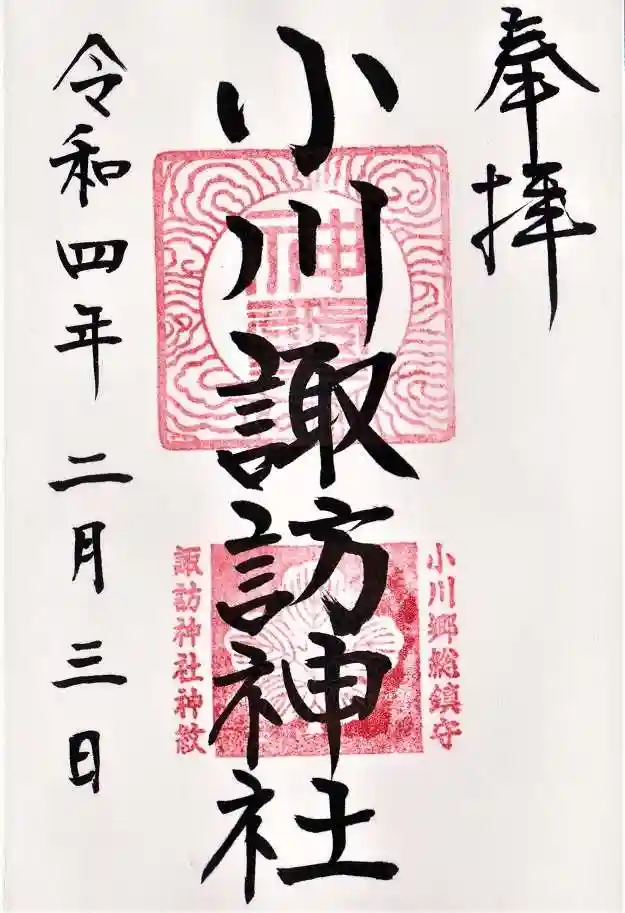 奉拝
小川諏訪神社
小川郷総鎮守
諏訪神社神紋
令和四年二月三日